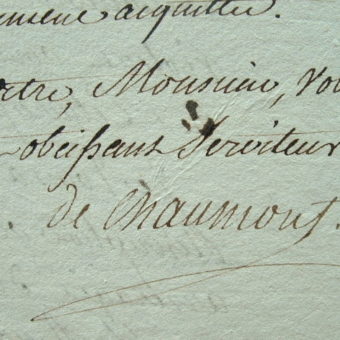 acquitter.
être, Monsieur, Vo
obeissant Serviteur
de Chaumont.